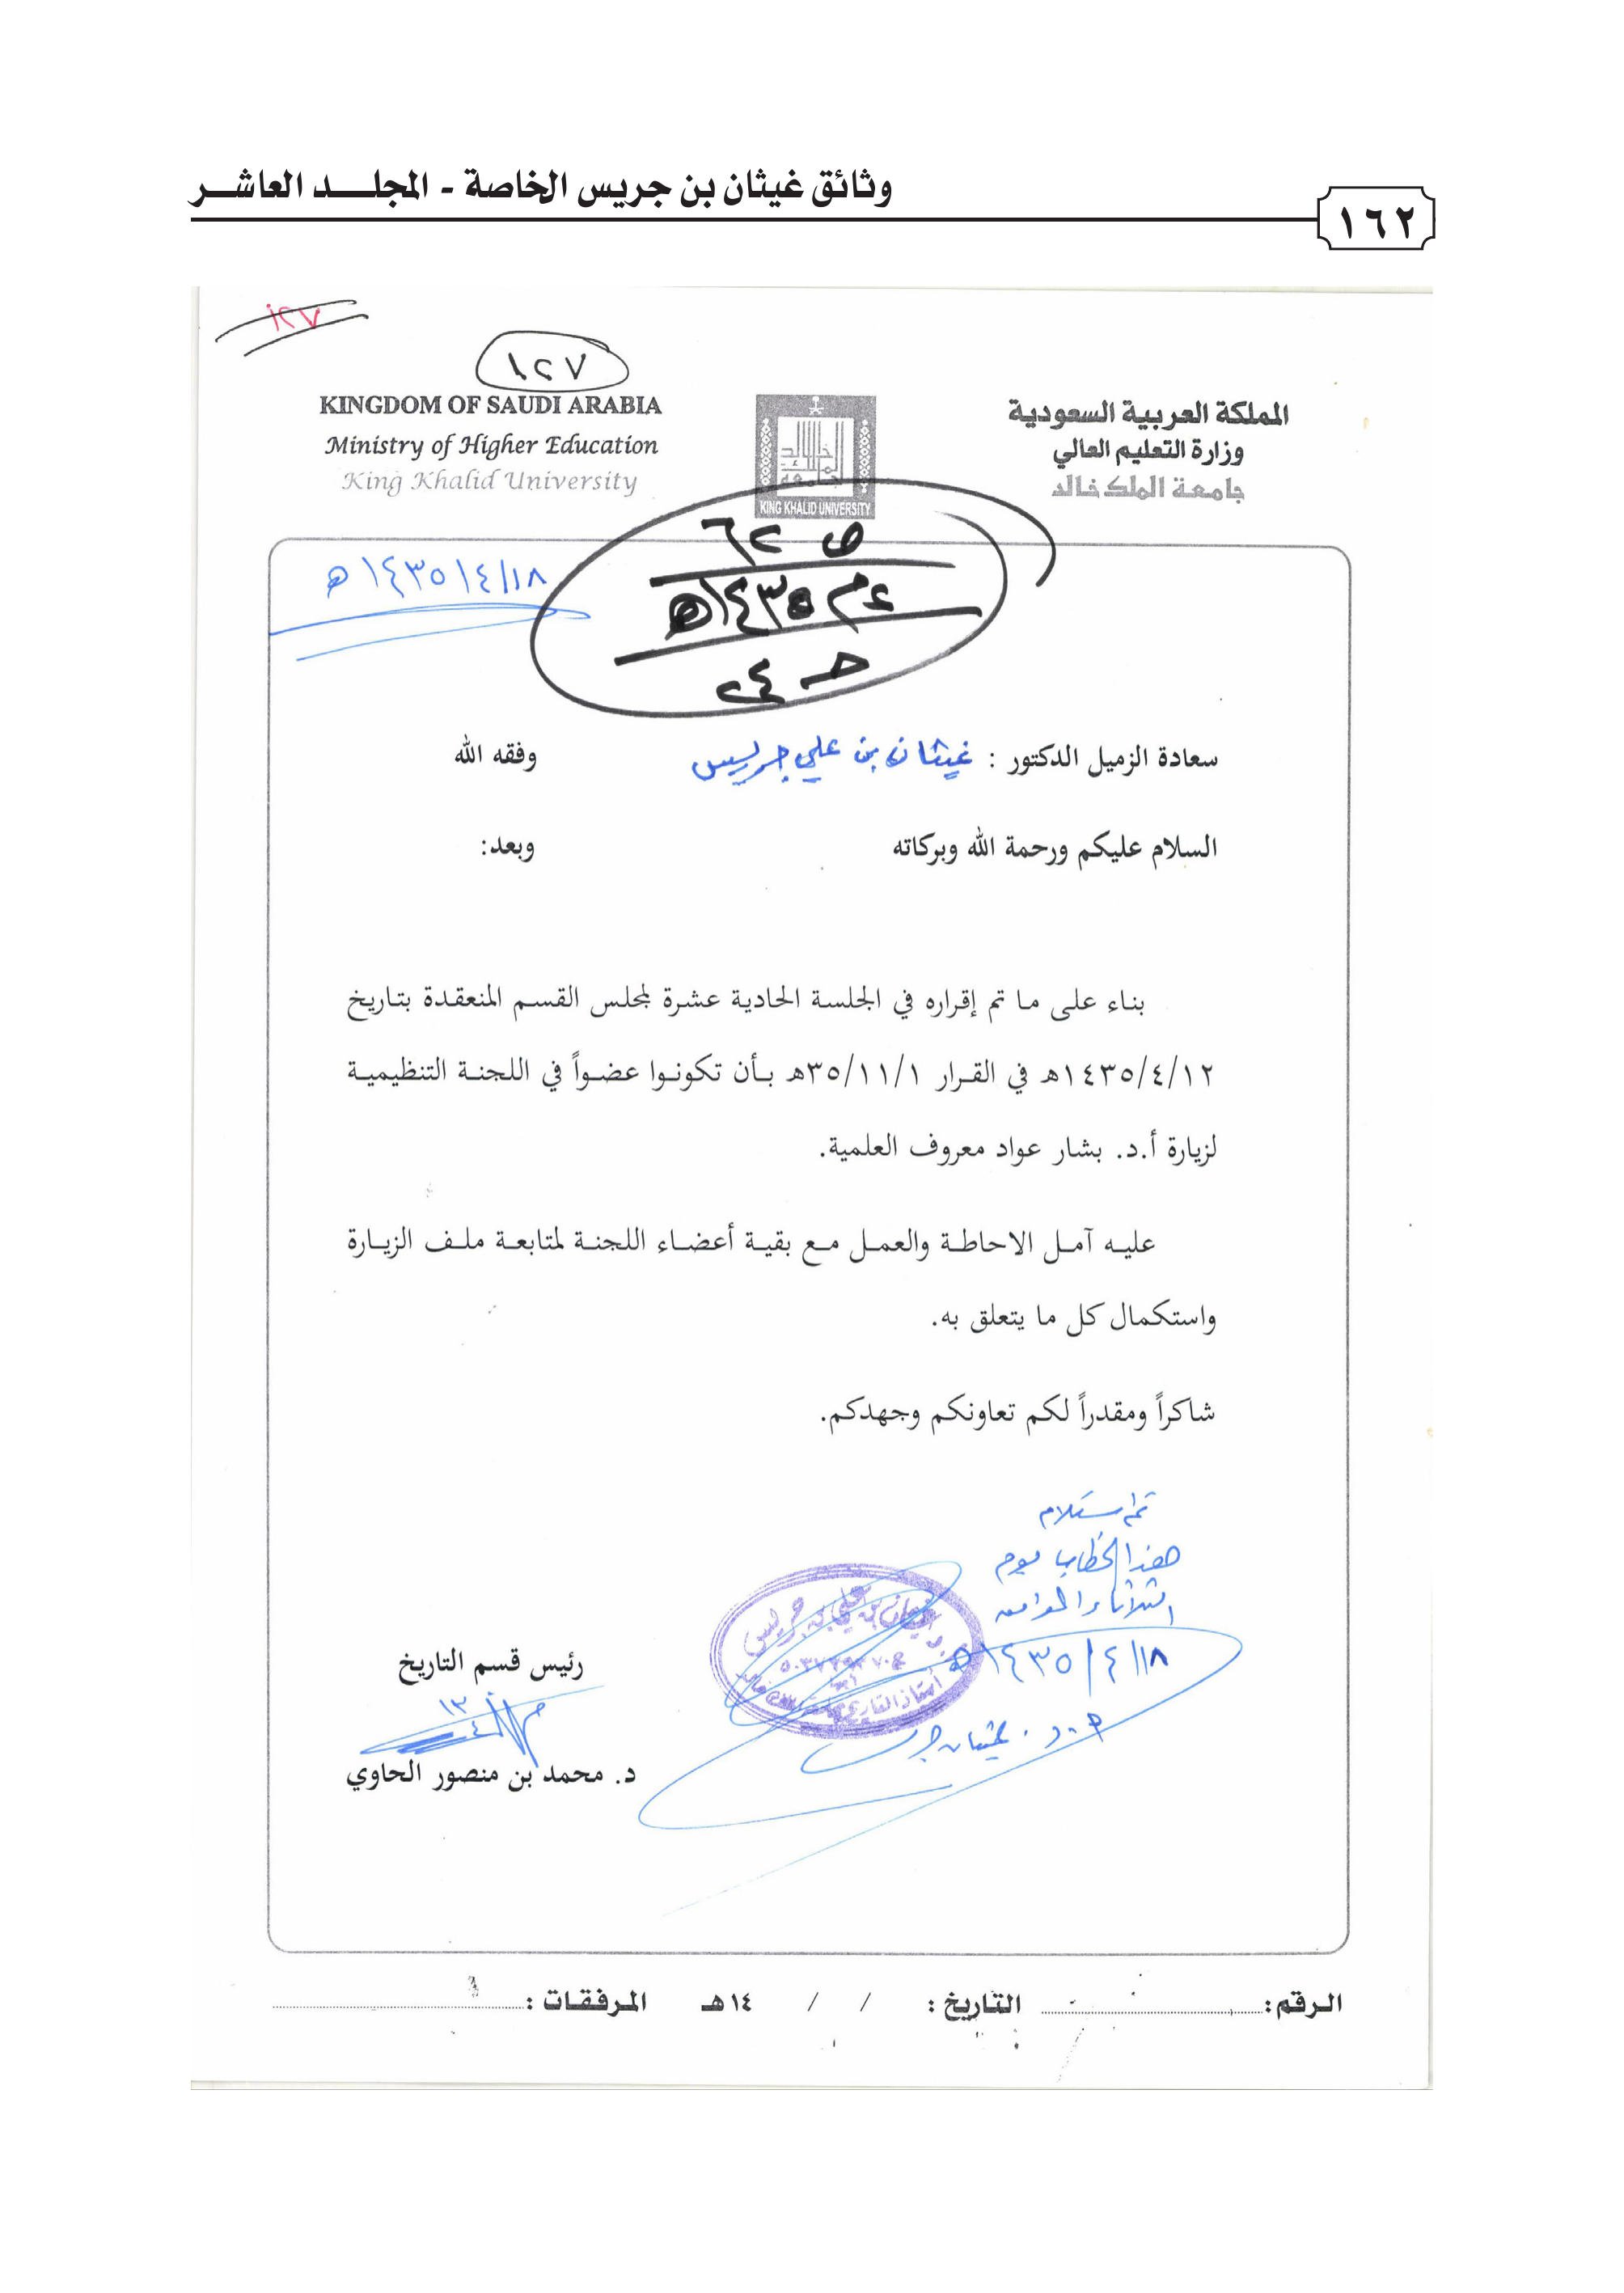 وثائق غيثان بن جريس الخاصة - المجلد العاشر
١٦٢
١٢٧
١٢٧
KINGDOM OF SAUDI ARABIA
Ministry of Higher Education
King Khalid University
المملكة العربية السعودية
وزارة التعليم العالي
جامعة الملك خالد
KING KHALID UNIVERSITY
١٤٣٥/٤/١٨هـ
ص ٦٢
١٤٣٥هـ
حـ ٢٤
سعادة الزميل الدكتور : غيثان بن علي جريس وفقه الله
السلام عليكم ورحمة الله وبركاته وبعد:
بناء على ما تم إقراره في الجلسة الحادية عشرة لمجلس القسم المنعقدة بتاريخ
١٤٣٥/٤/١٢هـ في القرار ٣٥/١١/١هـ بأن تكونوا عضواً في اللجنة التنظيمية
لزيارة أ.د. بشار عواد معروف العلمية.
عليه آمل الاحاطة والعمل مع بقية أعضاء اللجنة لمتابعة ملف الزيارة
واستكمال كل ما يتعلق به.
شاكراً ومقدراً لكم تعاونكم وجهدكم.
تم استلام
هذا الخطاب يوم
الثلاثاء الموافق
١٤٣٥/٤/١٨هـ
غيثان جريس
رئيس قسم التاريخ
د. محمد بن منصور الحاوي
الرقم: التاريخ: / / ١٤هـ المرفقات: